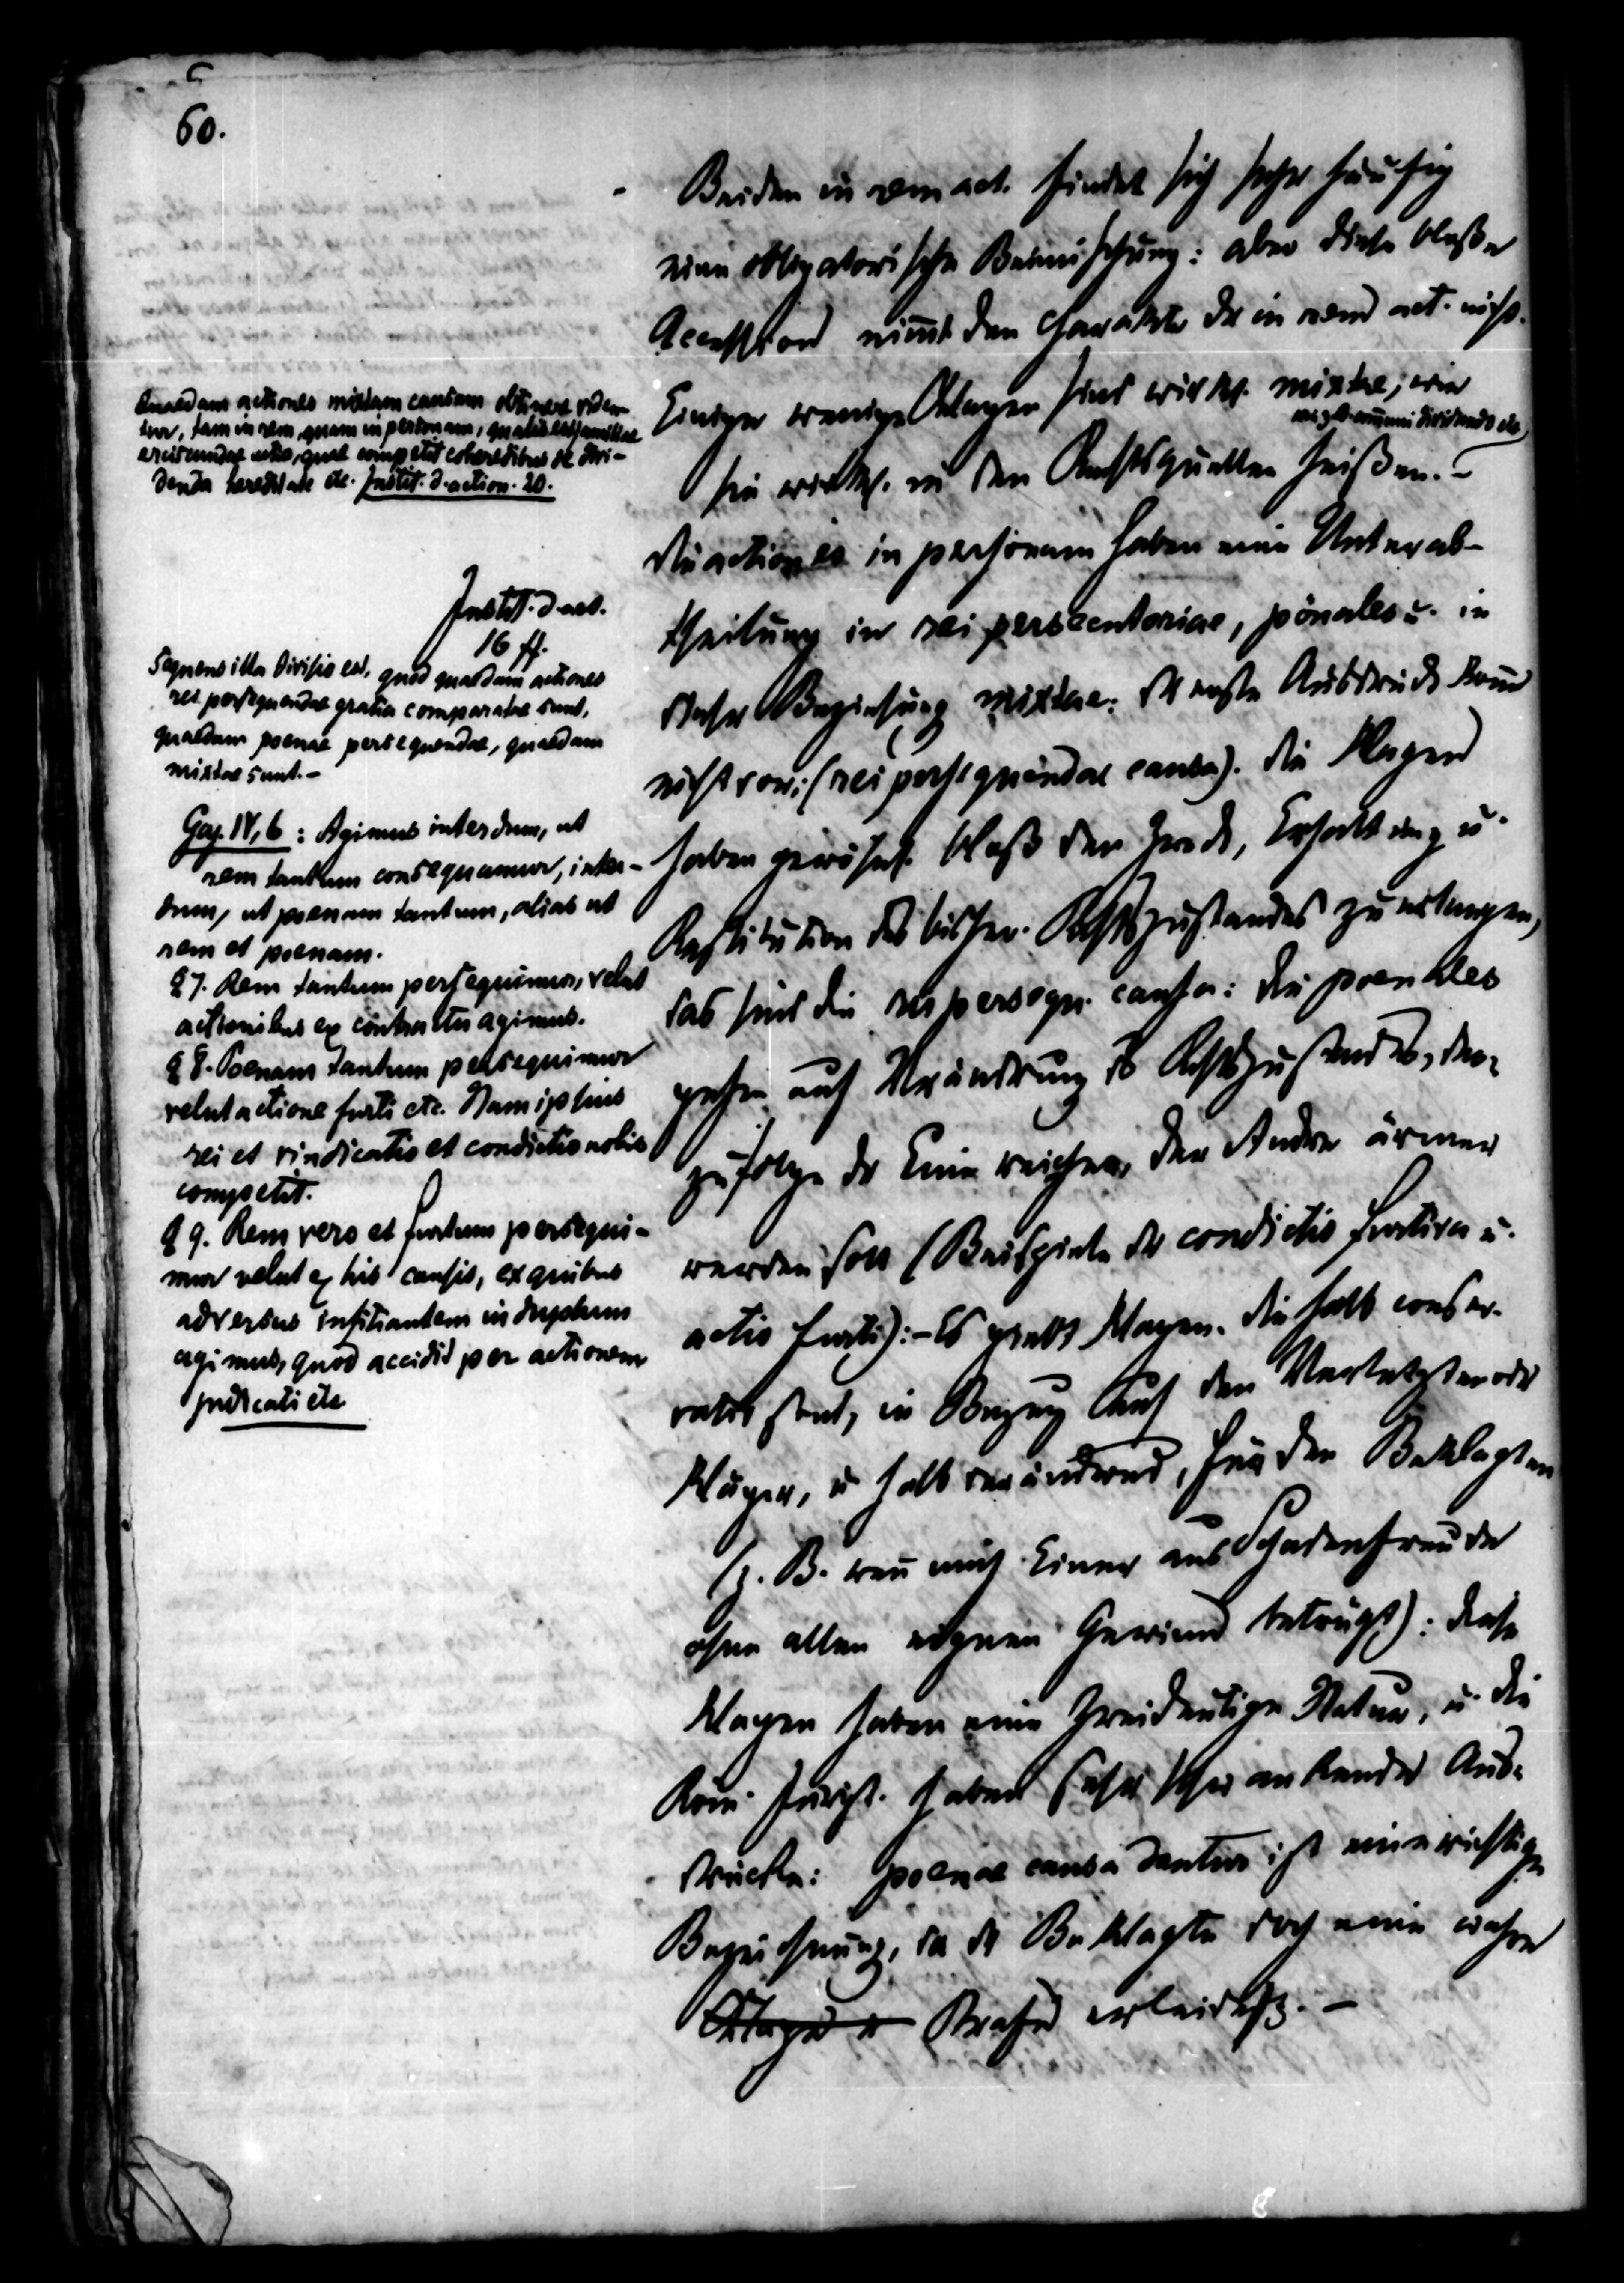 60.
Bei den in rem act. findet sich sehr häufig
eine obligatorische Beimischung: aber diese bloße
Accession nimt den Charakter der in rem act. nicht.
Einige wenige Klagen sind wirkl. mixtae, wie
communi dividundo etc
sie wirkl. in den Rechtsquellen heißen. –
Die actiones in personam haben eine Unterab-
theilung in rei persecutoriae, pönales u. in
dieser Beziehung mixtae. Der erste Ausdruck komt
nicht vor: (rei persequendae causa). Die Klagen
haben gewöhnl. bloß den Zweck, Erhaltung u.
Restitution des bisher. Rechtszustandes zu erlangen,
das sind die rei persequ. causa: die poenales
gehen auf Veränderung des Rechtszustandes, dem-
zufolge der Eine reicher, der Andre ärmer
werden soll (Beispiele der condictio furtiva u.
actio furti): – Es giebt Klagen, die halb conser-
vativ sind, in Bezug auf den Verletzten oder
Kläger, u. halb verändernd, für den Beklagten
(z. B. wen mich Einer aus Schadenfreude
ohne allen eignen Gewinn betrügt): diese
Klagen haben eine zweideutige Natur, u. die
Röm. Jurist. haben sehr schwankende Aus-
drücke: poenae causa dantur ist eine richtige
Bezeichnung, da der Beklagte doch eine wahre
Strafe erleidet. –
Quaedam actiones mixtam causam obtinere viden-
tur, tam in rem, quam in personam, qualis est familiae
erciscundae actio, quae competit coheredibus de divi-
denda hereditate etc. Instit. d. action. 20.
Instit. d. act.
16 ff.
Sequens illa divisio est, quod quaedam actiones
rei persequendae gratia comparatae sunt,
quaedam poenae persequendae, quaedam
mixtae sunt. –
Gaj. IV, 6: Agimus interdum, ut
rem tantum consequamur, inter-
dum, ut poenam tantum, alias ut
rem et poenam.
§ 7. Rem tantum persequimur, velut
actionibus ex contractu agimus.
§ 8. Poenam tantum persequimur
velut actione furti etc. Nam ipsius
rei et vindicatio et condictio nobis
competit.
§ 9. Rem vero et furtum persequi-
mur velut ex his causis, ex quibus
adversus infitiantem in duplum
agimus, quod accidit per actionem
judicati etc